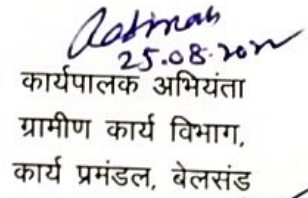 25.08.2022
कार्यपालक अभियंता
ग्रामीण कार्य विभाग,
कार्य प्रमंडल, बेलसंड